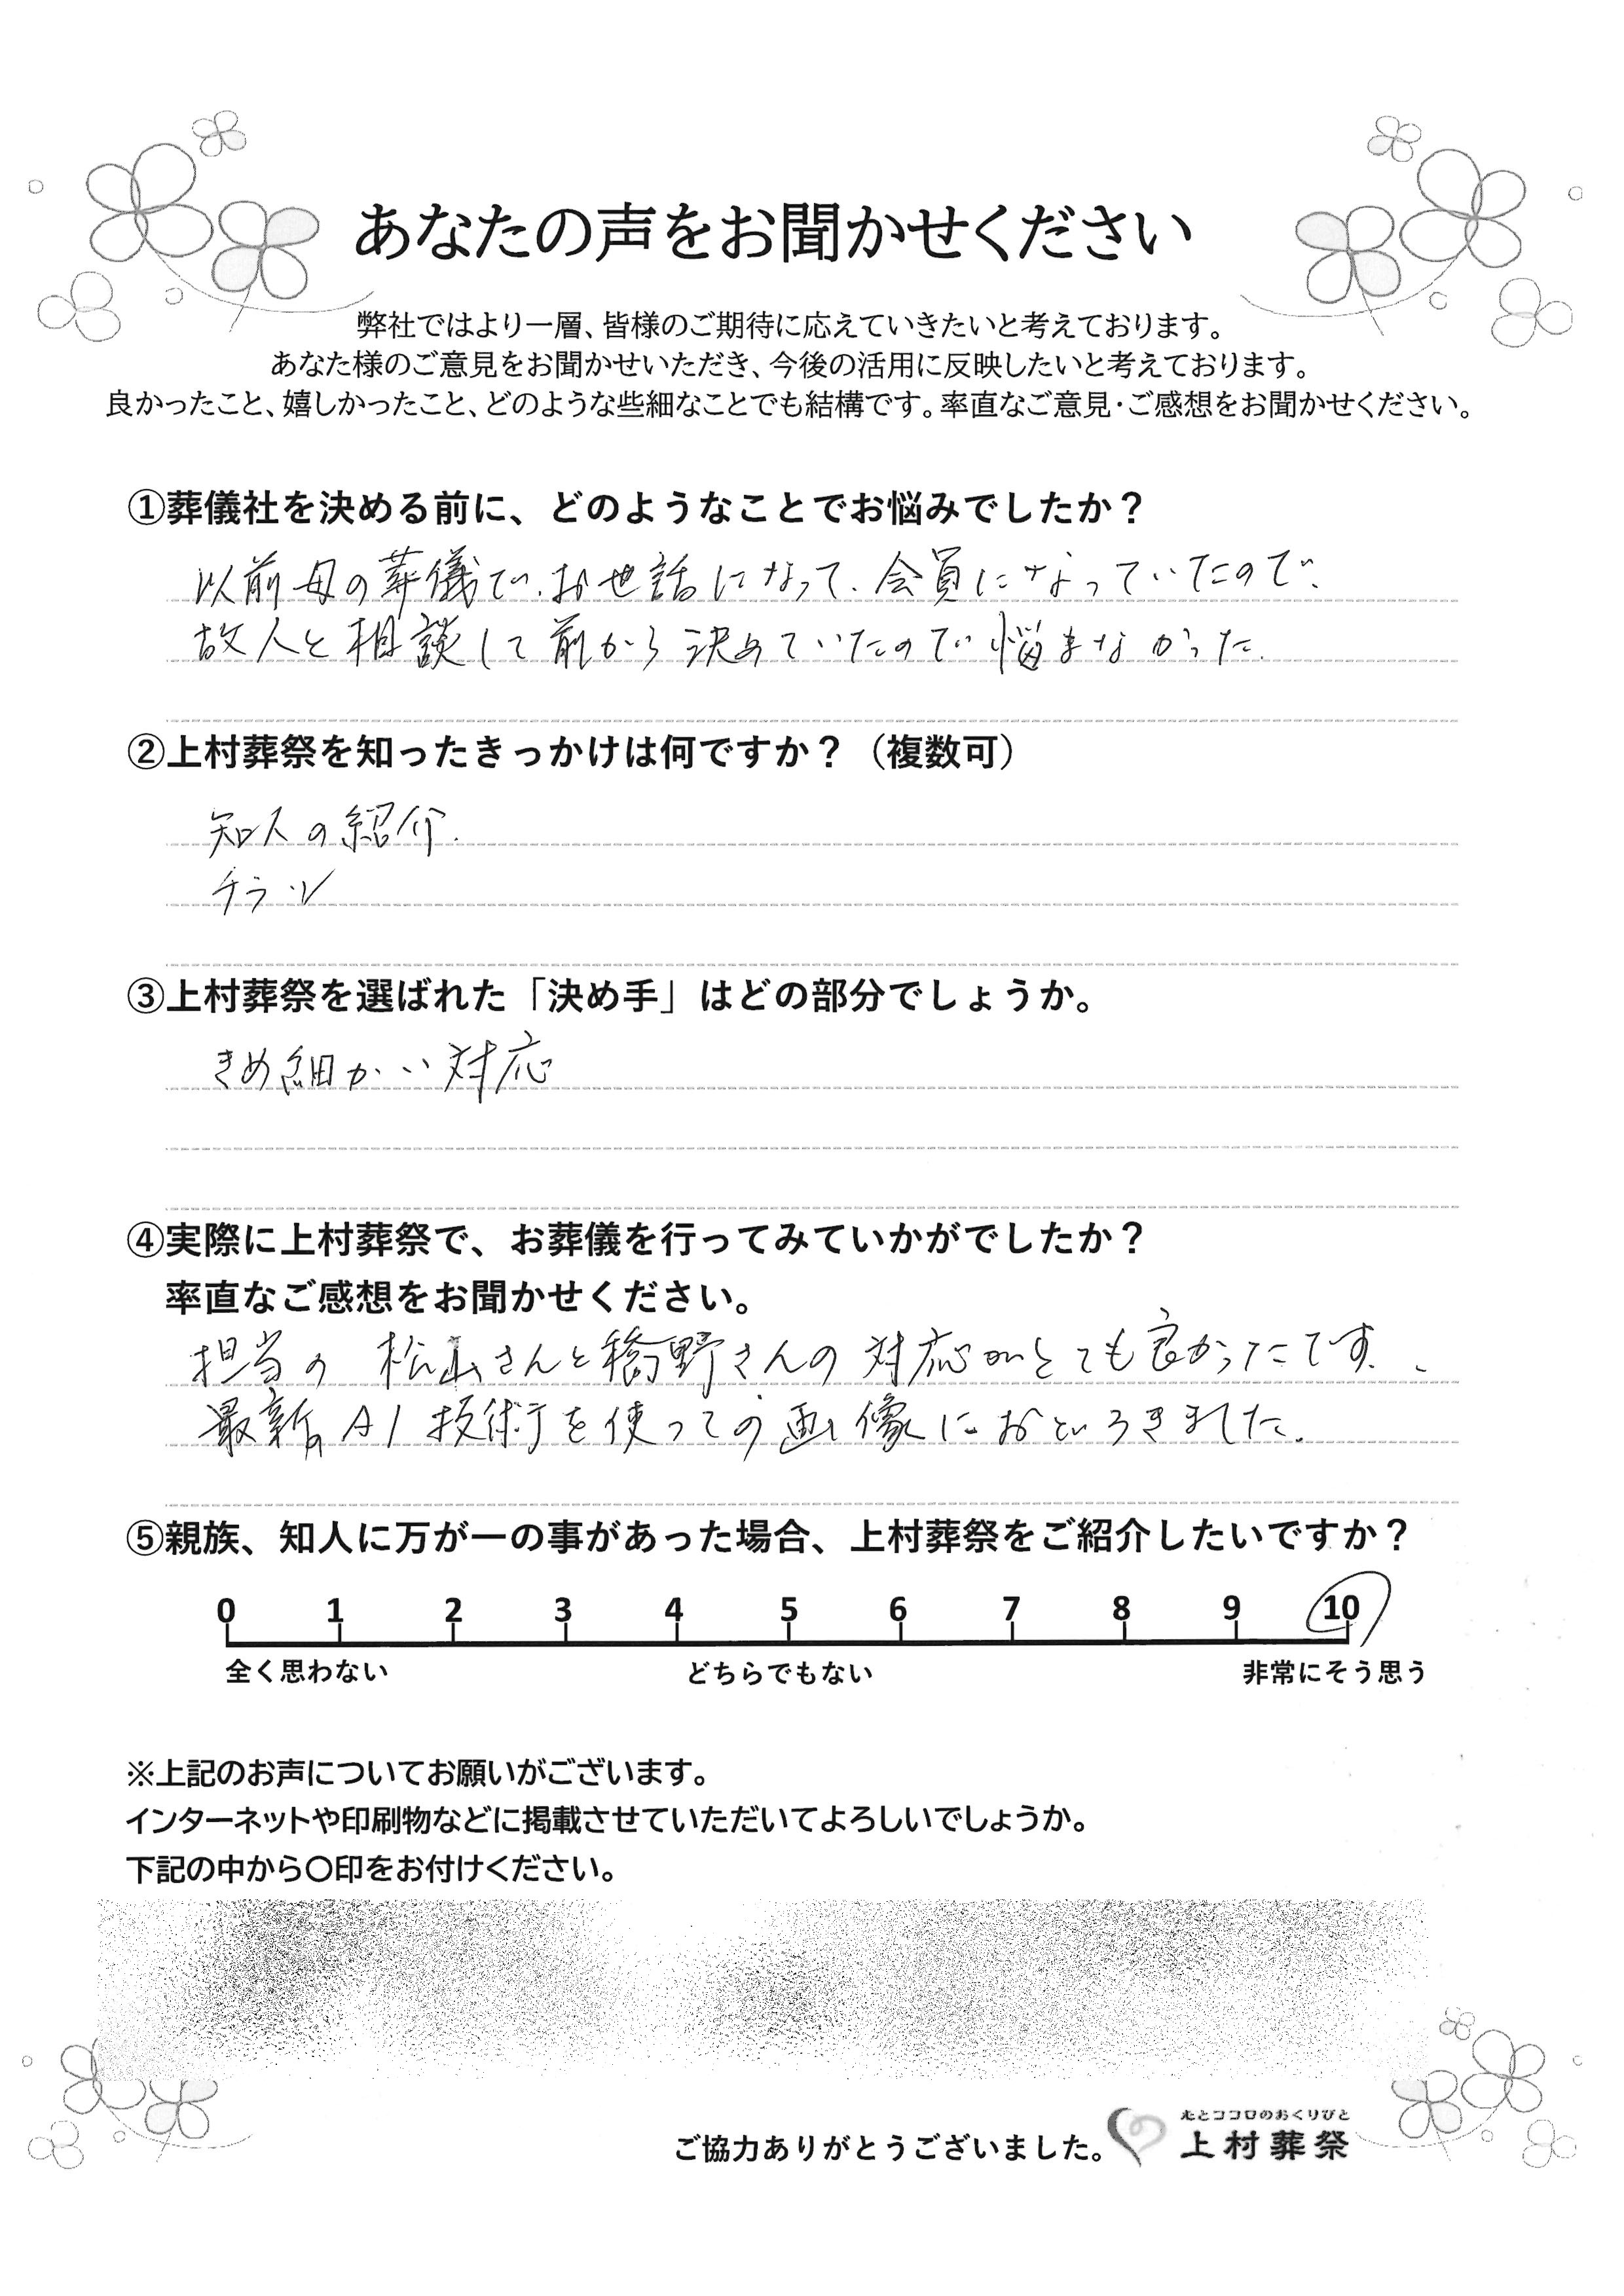 あなたの声をお聞かせください
弊社ではより一層、皆様のご期待に応えていきたいと考えております。
あなた様のご意見をお聞かせいただき、今後の活用に反映したいと考えております。
良かったこと、嬉しかったこと、どのような些細なことでも結構です。率直なご意見・ご感想をお聞かせください。
①葬儀社を決める前に、どのようなことでお悩みでしたか？
以前母の葬儀で、お世話になって、会員になっていたので、
故人と相談して前から決めていたので悩まなかった。
②上村葬祭を知ったきっかけは何ですか？（複数可）
知人の紹介.
チラシ
③上村葬祭を選ばれた「決め手」はどの部分でしょうか。
きめ細かい対応
④実際に上村葬祭で、お葬儀を行ってみていかがでしたか？
率直なご感想をお聞かせください。
担当の 松山さんと橋野さんの対応がとても良かったです。
最新のAI技術を使っての画像におどろきました.
⑤親族、知人に万が一の事があった場合、上村葬祭をご紹介したいですか？
0 1 2 3 4 5 6 7 8 9 10
全く思わない どちらでもない 非常にそう思う
※上記のお声についてお願いがございます。
インターネットや印刷物などに掲載させていただいてよろしいでしょうか。
下記の中から〇印をお付けください。
とココロのおくりびと
ご協力ありがとうございました。 上村葬祭